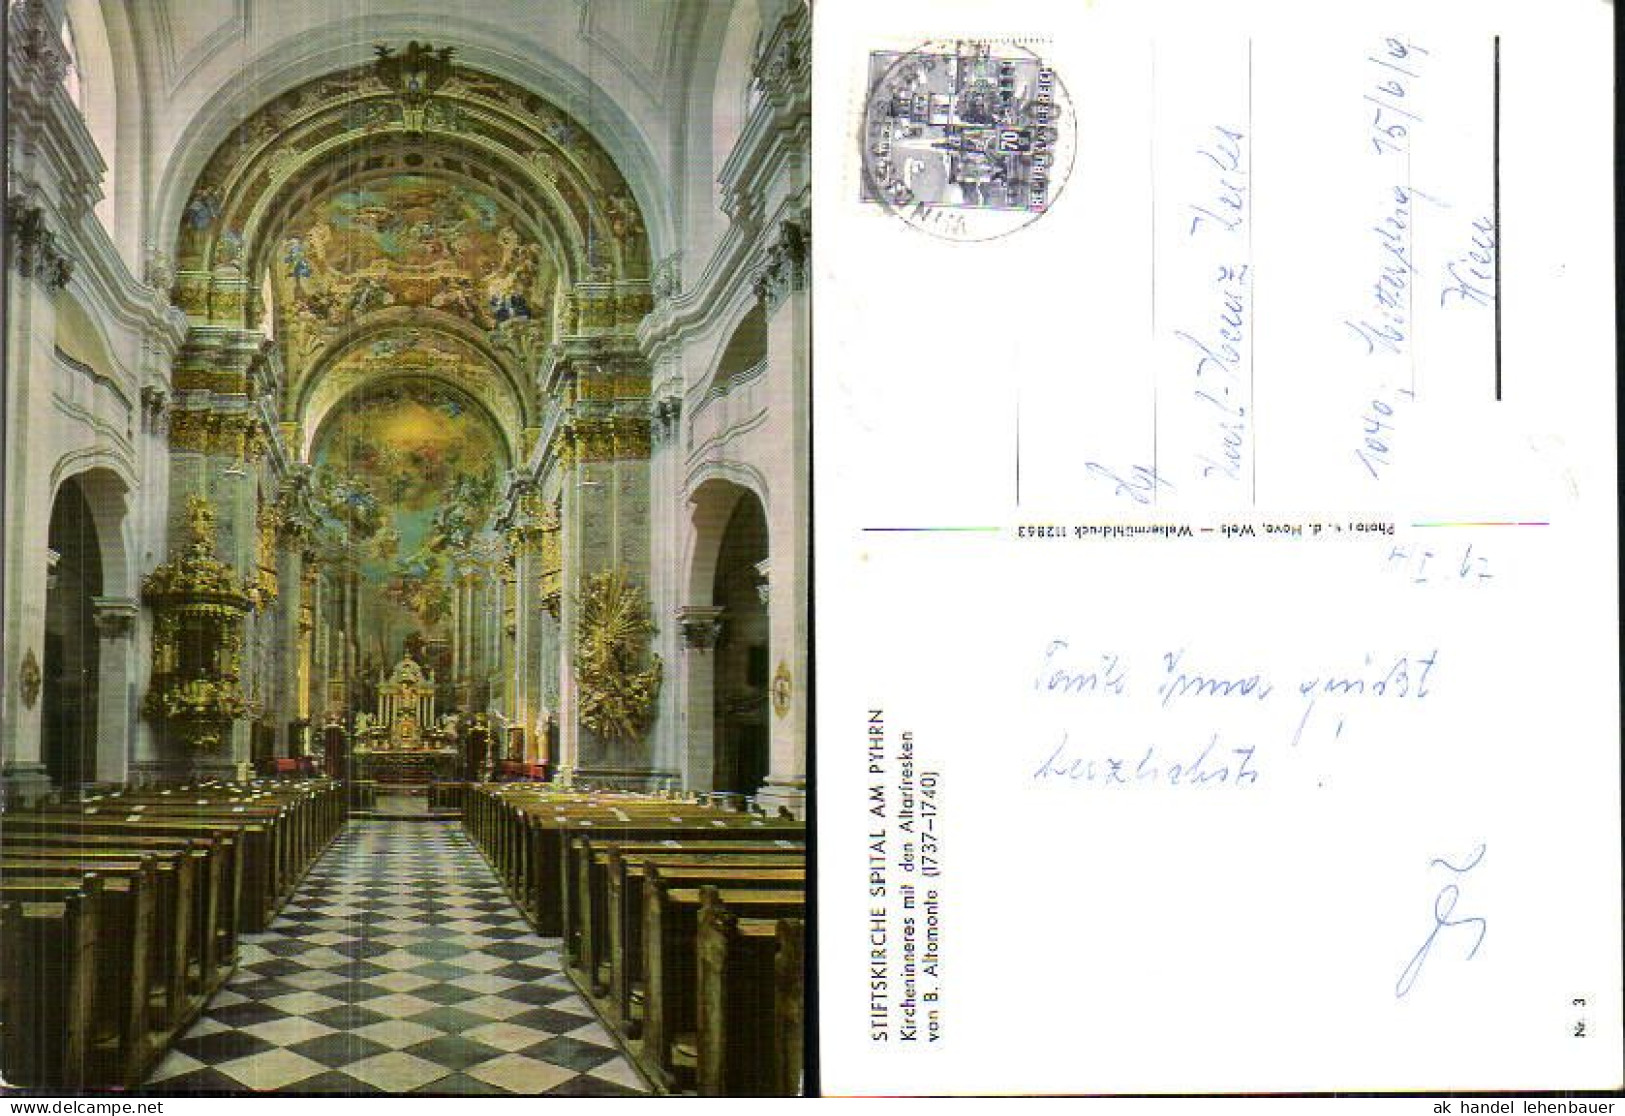 STIFTSKIRCHE SPITAL AM PYHRN
Kircheninneres mit den Altarfresken
von B. Altomonte (1737–1740)
Nr. 3
Photo: v. d. Hove, Wels — Welsermühldruck 112863
REPUBLIK ÖSTERREICH
70
Tante Irma grüßt
herzlichst
Karl-Heinz
1040, 15/6/9
Wien
ak handel lehenbauer